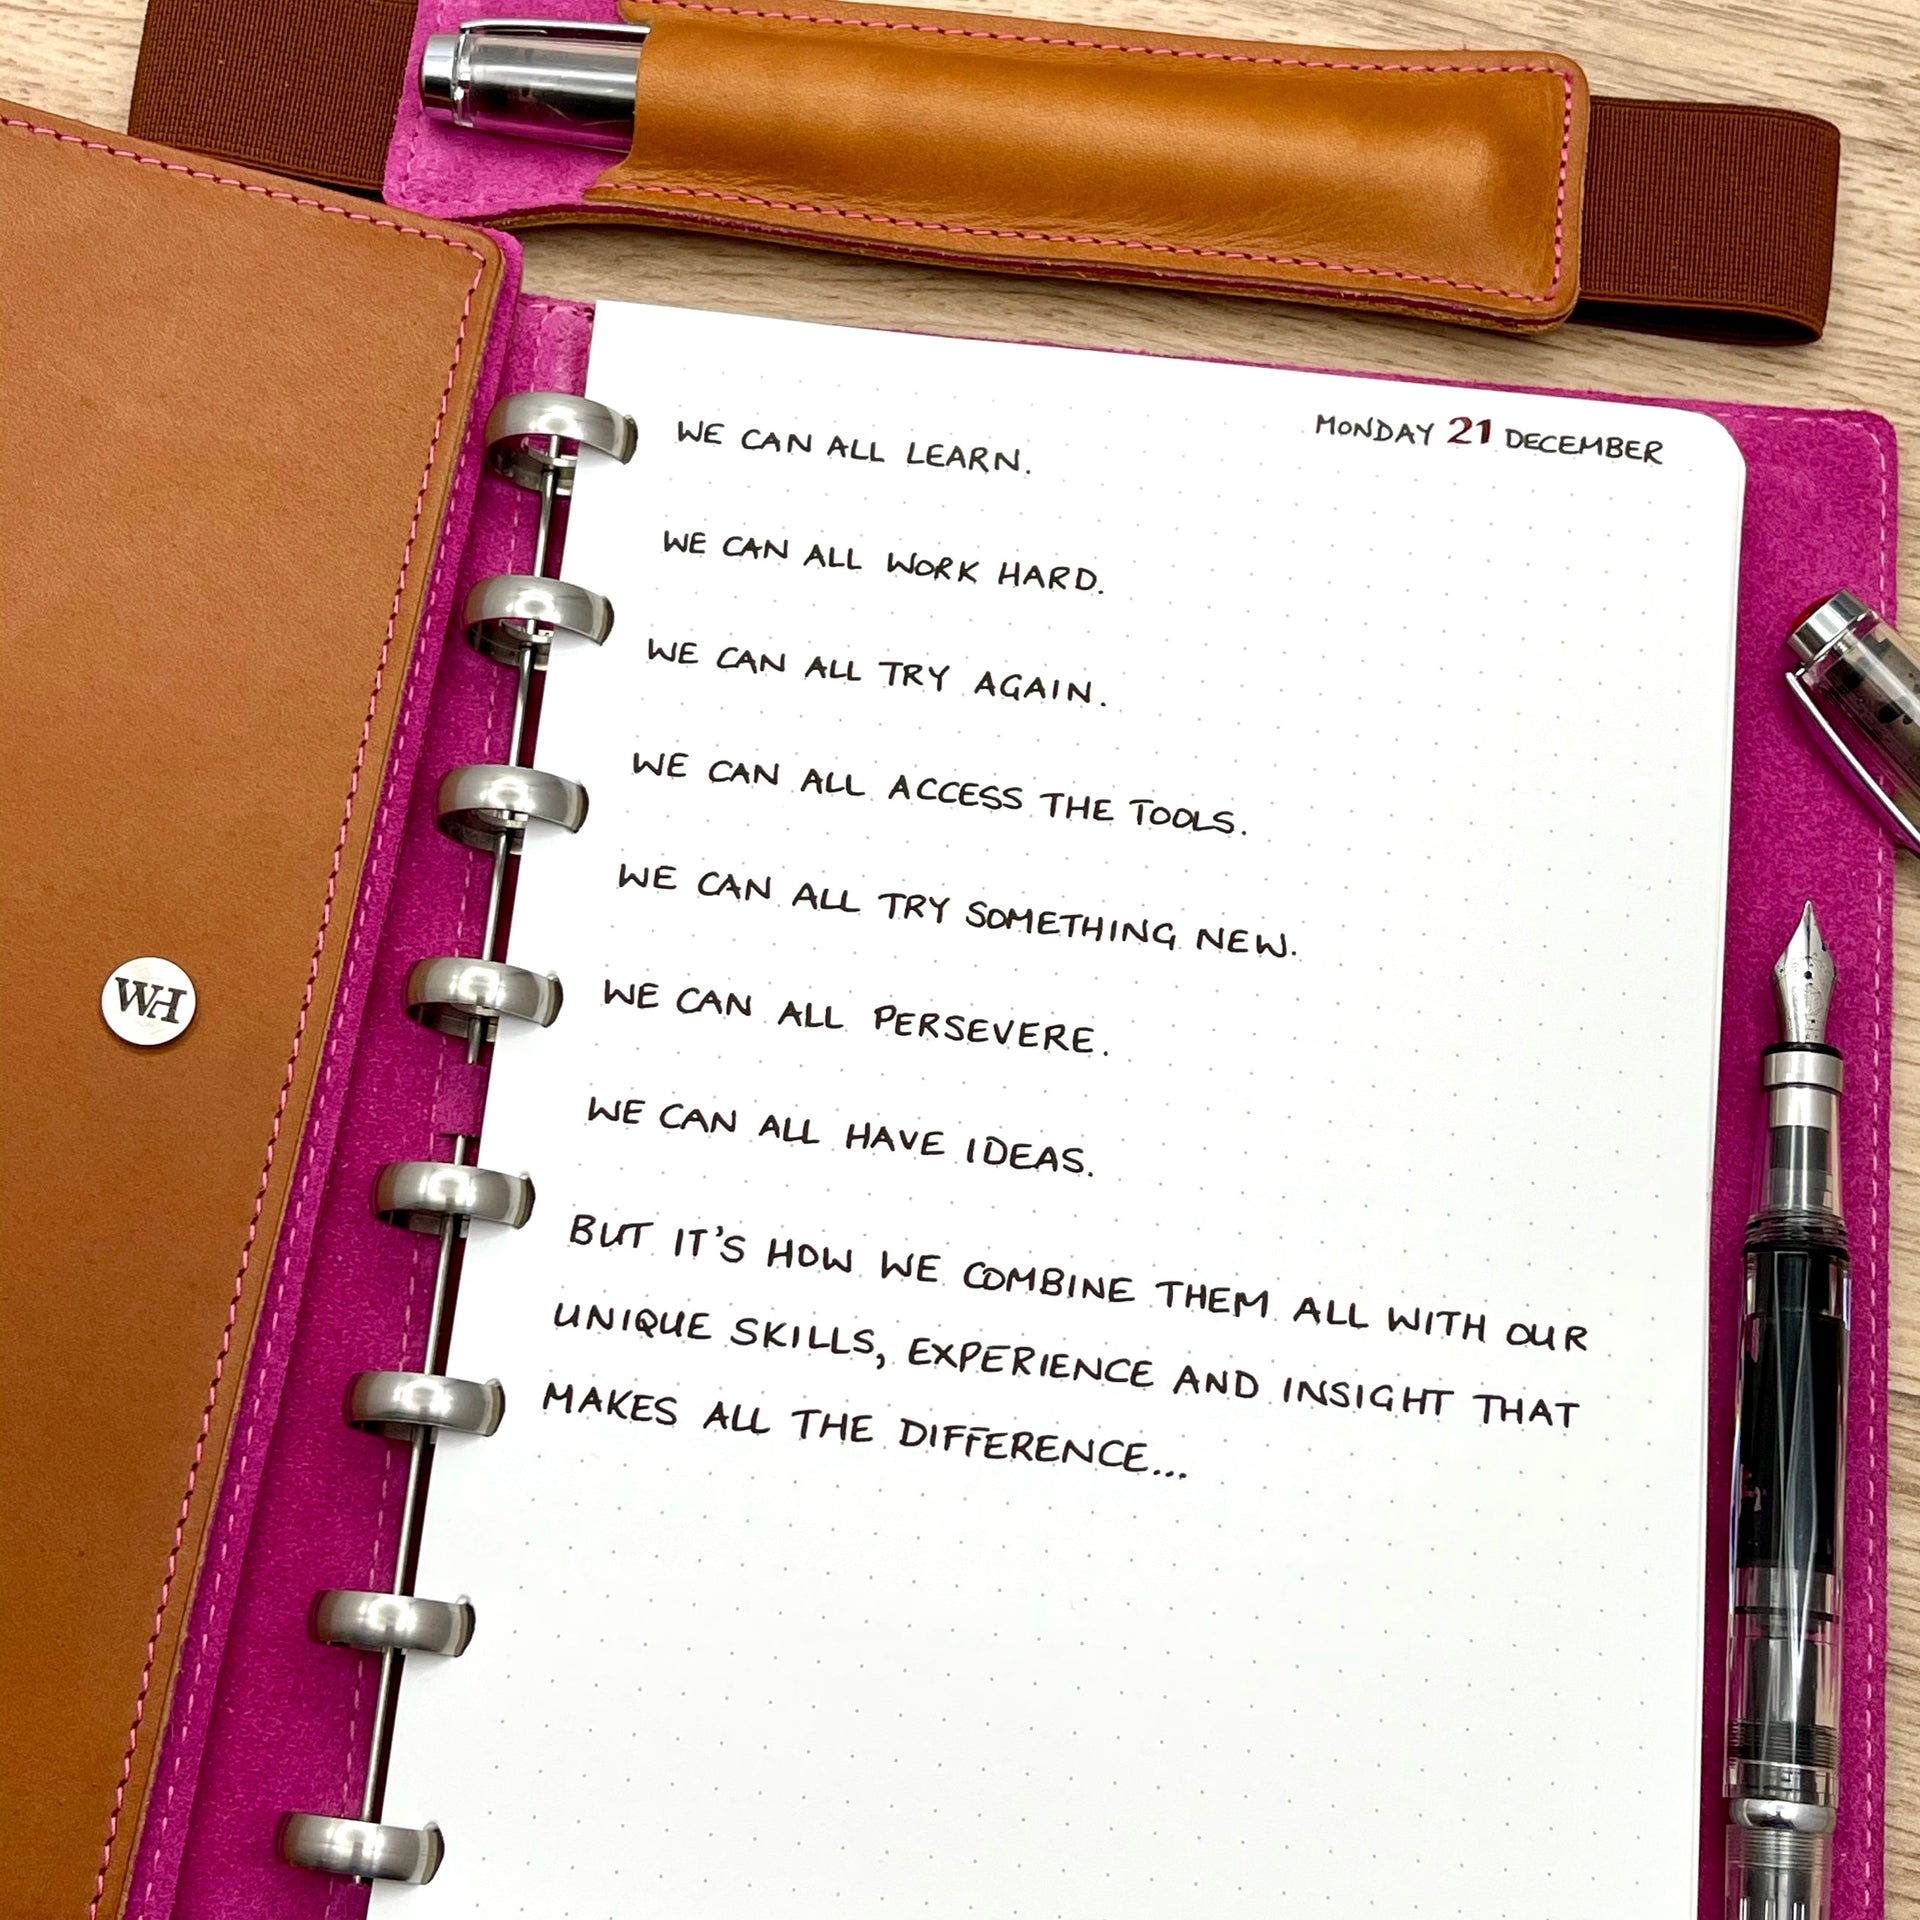 MONDAY 21 DECEMBER
WE CAN ALL LEARN.
WE CAN ALL WORK HARD.
WE CAN ALL TRY AGAIN.
WE CAN ALL ACCESS THE TOOLS.
WE CAN ALL TRY SOMETHING NEW.
WE CAN ALL PERSEVERE.
WE CAN ALL HAVE IDEAS.
BUT IT'S HOW WE COMBINE THEM ALL WITH OUR
UNIQUE SKILLS, EXPERIENCE AND INSIGHT THAT
MAKES ALL THE DIFFERENCE...
WH